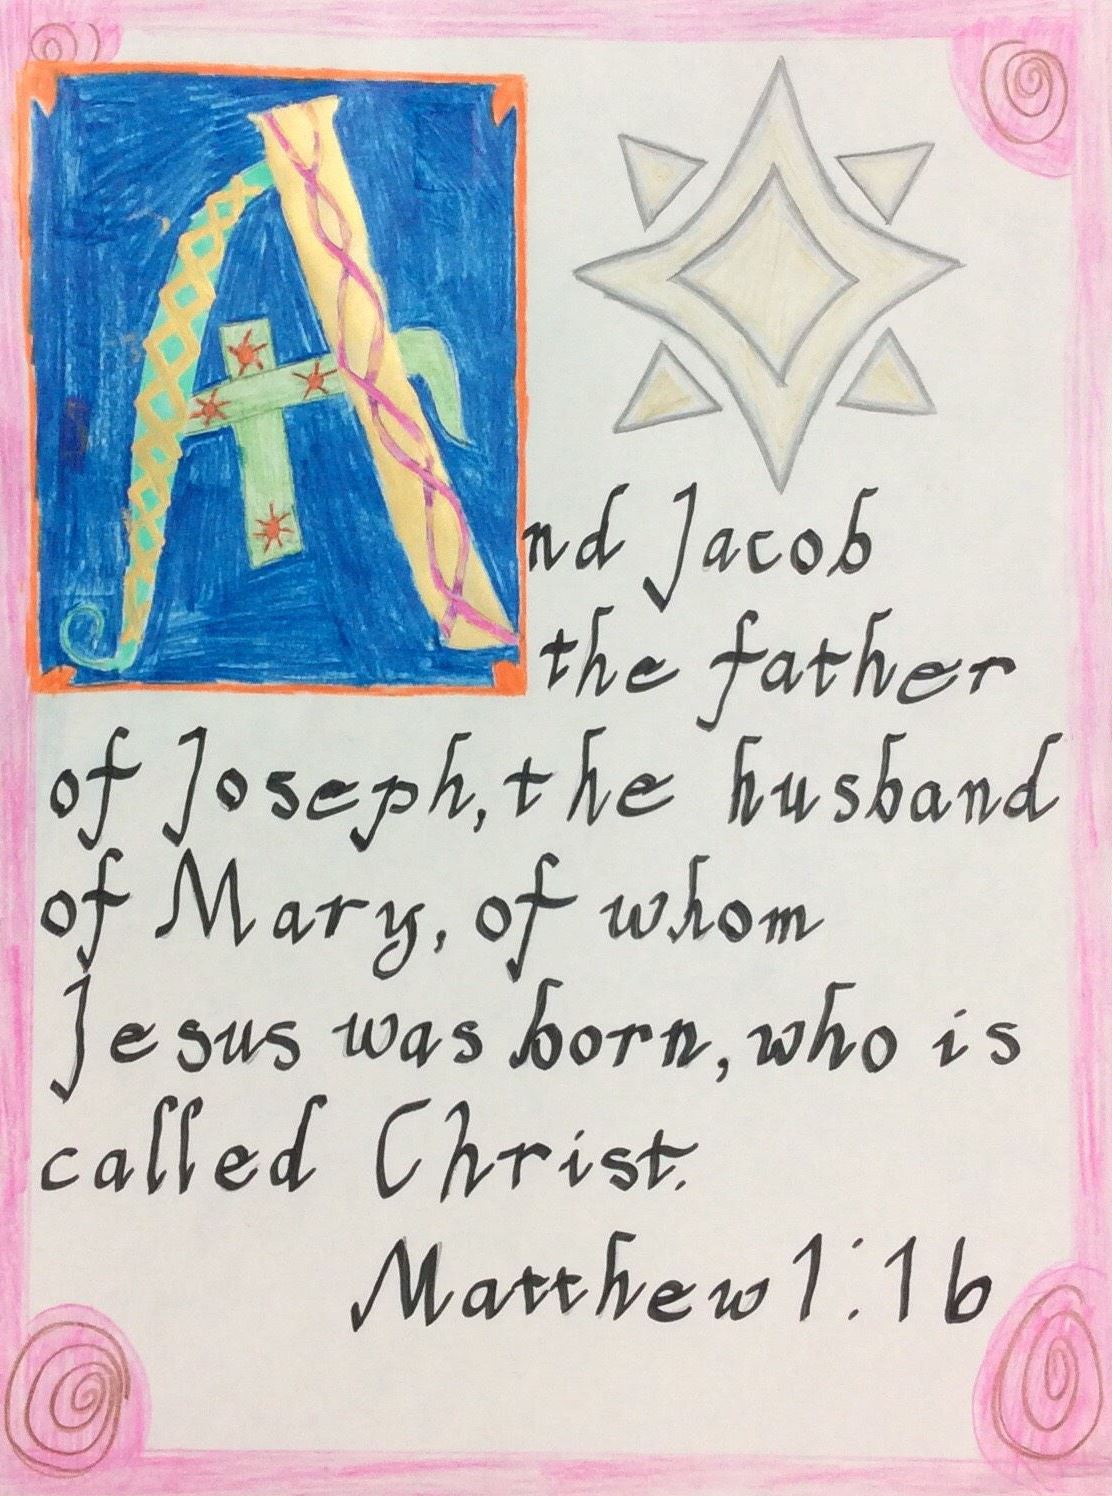 And Jacob
the father
of Joseph, the husband
of Mary, of whom
Jesus was born, who is
called Christ.
Matthew 1:16